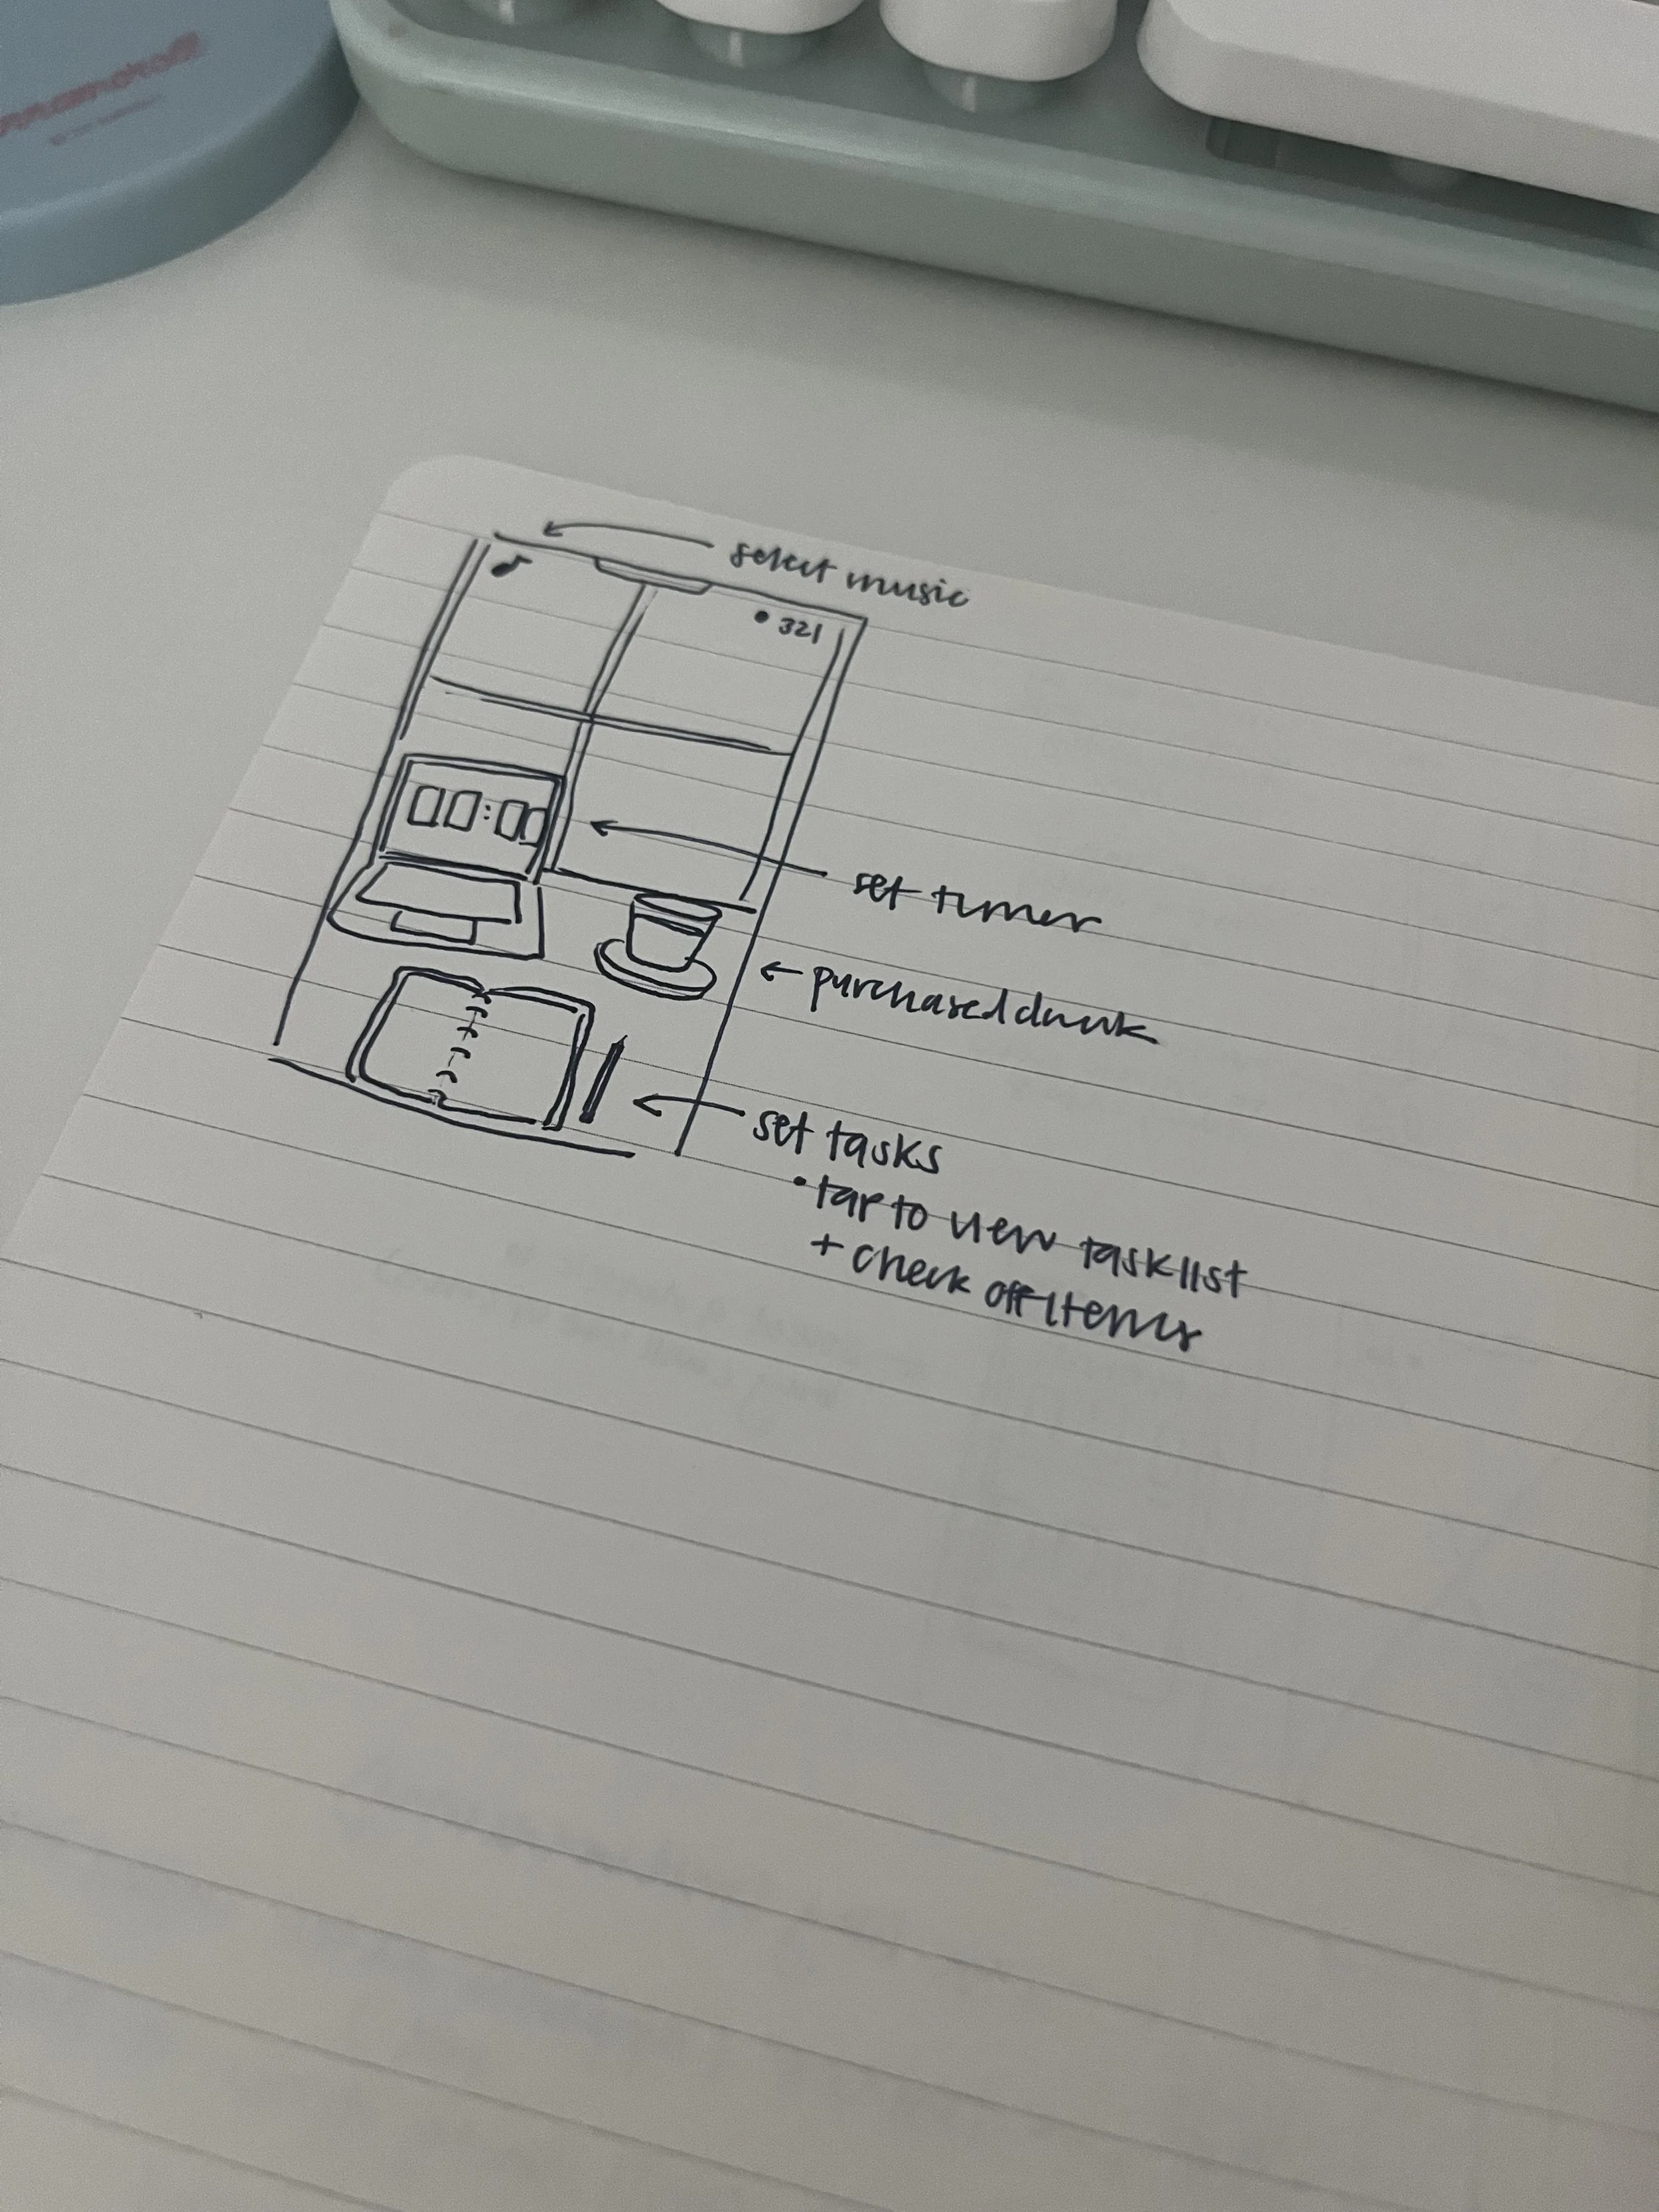 select music
♪
• 321
00:00
set timer
← purchased drink
set tasks
• tap to view task list
+ check off items